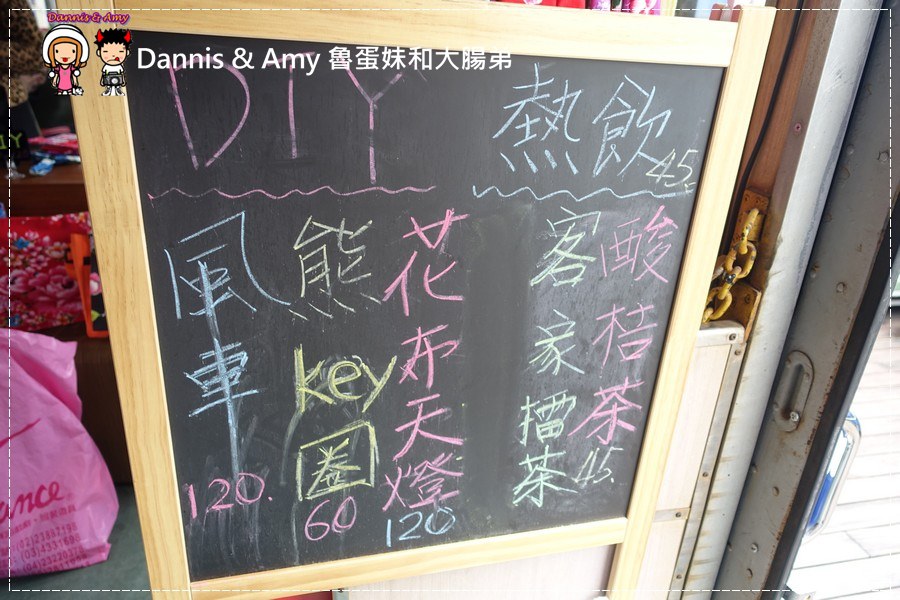 Dannis & Amy
Dannis & Amy 魯蛋妹和大腸弟
DIY
風車
120.
熊key圈
60
花布天燈
120
熱飲
45.
酸桔茶
客家擂茶
45.